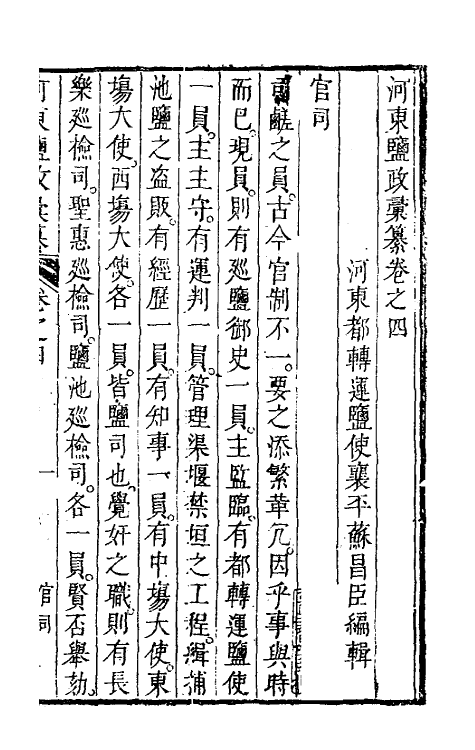 河東鹽政彙纂卷之四
河東都轉運鹽使襄平蘇昌臣編輯
官司
司鹺之員。古今官制不一。要之添繁革冗。因乎事與時
而已。現員。則有廵鹽御史一員。主監臨。有都轉運鹽使
一員。主主守。有運判一員。管理渠堰禁垣之工程。緝捕
池鹽之盜販。有經歷一員。有知事一員。有中塲大使。東
塲大使。西塲大使。各一員。皆鹽司也。覺奸之職。則有長
樂廵檢司。聖惠廵檢司。鹽池廵檢司。各一員。賢否舉劾。
河東鹽政彙纂 卷之四 一 官司